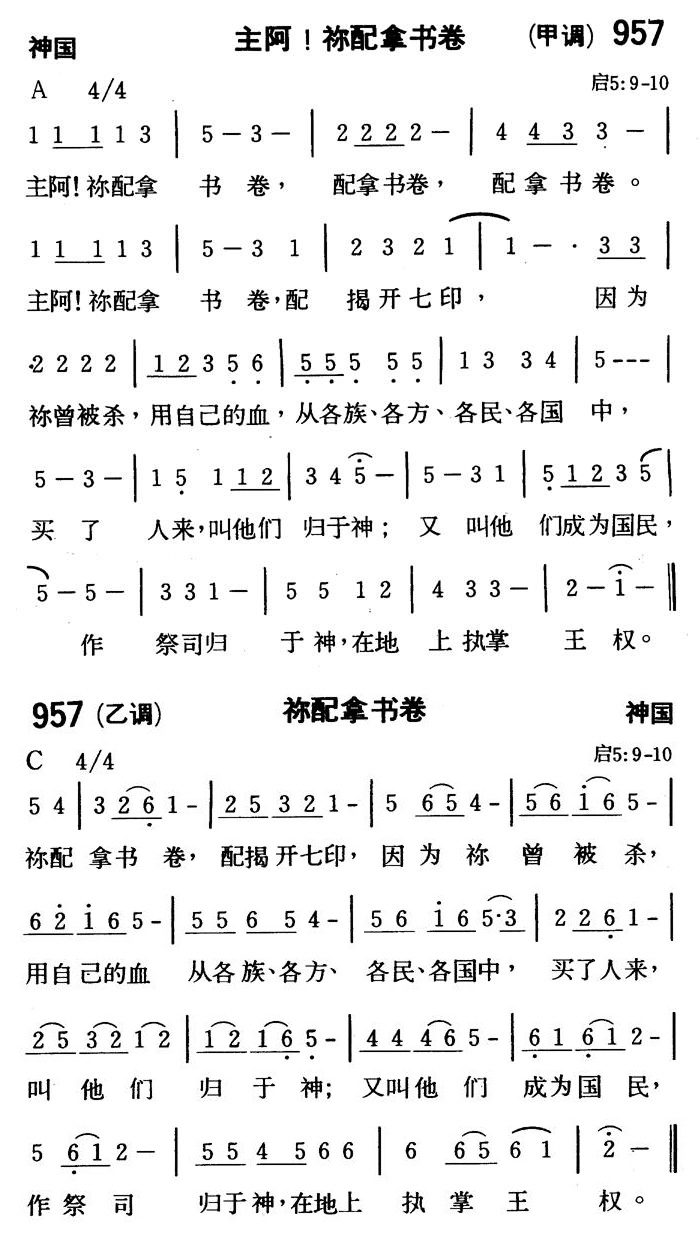 神国 主阿！祢配拿书卷 (甲调) 957
A 4/4 启5:9-10
1 1 1 1 3 | 5 - 3 - | 2 2 2 2 - | 4 4 3 3 - |
主阿!祢配拿 书 卷， 配拿书卷， 配拿书卷。
1 1 1 1 3 | 5 - 3 1 | 2 3 2 1 | 1 - · 3 3 |
主阿!祢配拿 书 卷，配 揭开七印， 因为
2 2 2 2 | 1 2 3 5 6 | 5 5 5 5 5 | 1 3 3 4 | 5 - - - |
祢曾被杀，用自己的血，从各族、各方、各民、各国 中，
5 - 3 - | 1 5 1 1 2 | 3 4 5 - | 5 - 3 1 | 5 1 2 3 5 |
买 了 人来，叫他们 归于神； 又 叫他 们成为国民，
5 - 5 - | 3 3 1 - | 5 5 1 2 | 4 3 3 - | 2 - 1 - ‖
作 祭司归 于神，在地 上执掌 王 权。
957 (乙调) 祢配拿书卷 神国
C 4/4 启5:9-10
5 4 | 3 2 6 1 - | 2 5 3 2 1 - | 5 6 5 4 - | 5 6 1 6 5 - |
祢配 拿书 卷， 配揭开七印， 因为 祢 曾 被 杀，
6 2 1 6 5 - | 5 5 6 5 4 - | 5 6 1 6 5·3 | 2 2 6 1 - |
用自己的血 从各族、各方、 各民、各国中， 买了人来，
2 5 3 2 1 2 | 1 2 1 6 5 - | 4 4 4 6 5 - | 6 1 6 1 2 - |
叫 他 们 归 于 神； 又叫他 们 成为国 民，
5 6 1 2 - | 5 5 4 5 6 6 | 6 6 5 6 1 | 2 - ‖
作祭 司 归于神，在地上 执 掌 王 权。